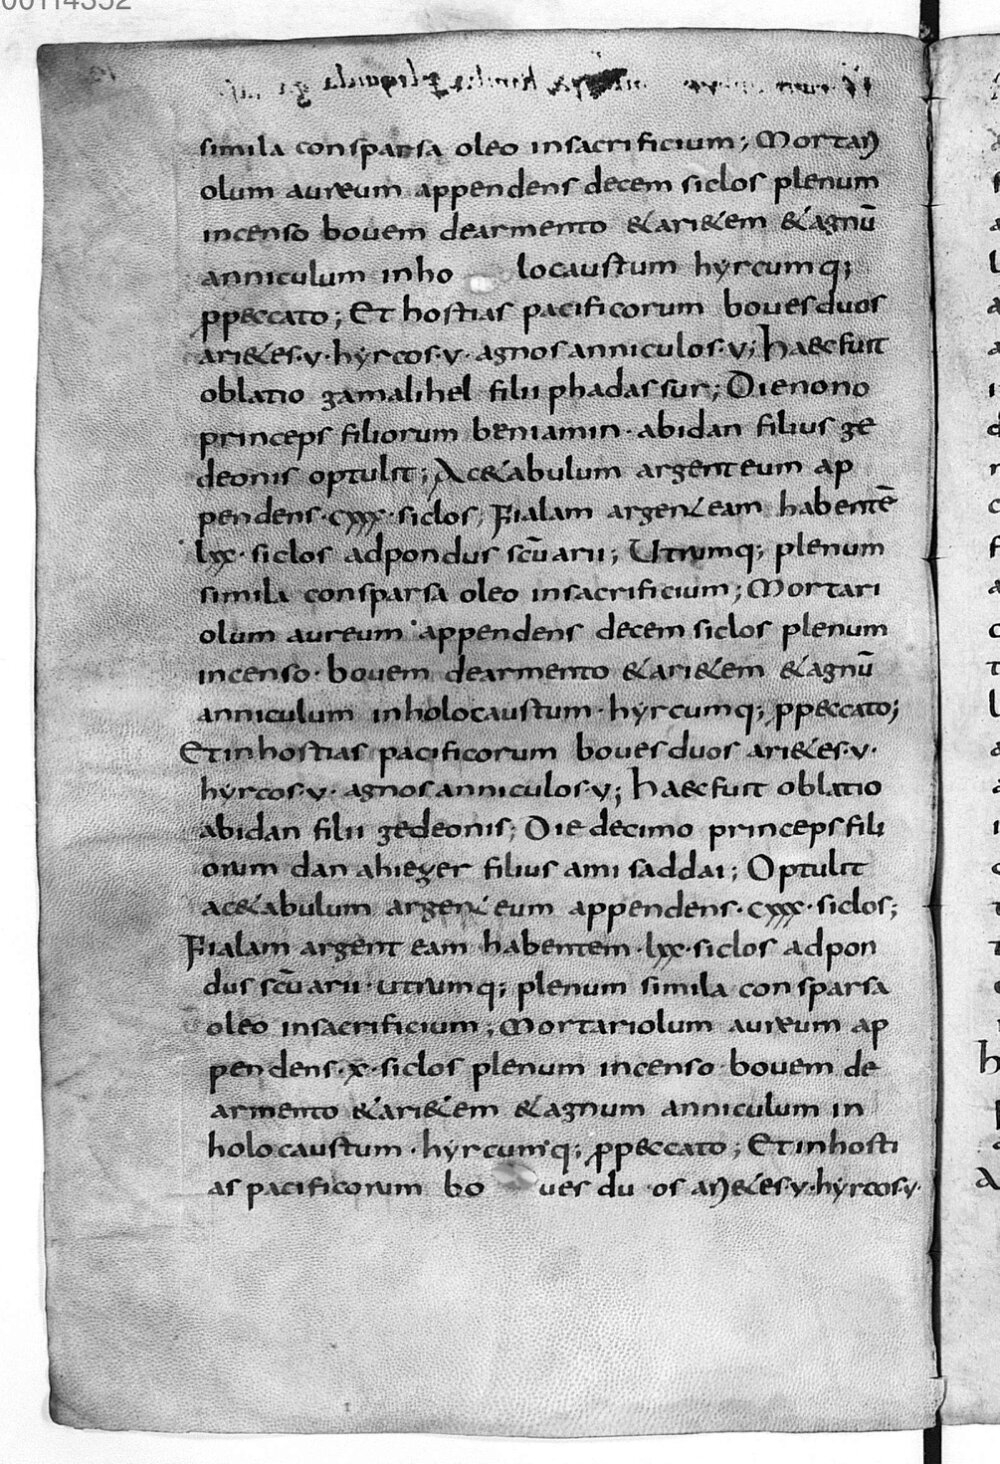 00114352
simila consparsa oleo insacrificium; Mortari
olum aureum appendens decem siclos plenum
incenso bouem dearmento &ari&em &agnū
anniculum inho locaustum hyrcumq;
ꝓpeccato; Et hostias pacificorum bouesduos
ari&es·v·hyrcos·v·agnosanniculos·v; Haecfuit
oblatio gamalihel filii phadassur; Dienono
princeps filiorum beniamin·abidan filius ge
deonis optulit; Ac&abulum argenteum ap
pendens·cxxx·siclos; Fialam argenteam habentē
lxx·siclos adpondus scūarii; Utrumq; plenum
simila consparsa oleo insacrificium; Mortari
olum aureum·appendens decem siclos plenum
incenso·bouem dearmento &ari&em &agnū
anniculum inholocaustum·hyrcumq; ꝓpeccato;
Etinhostias pacificorum bouesduos ari&es·v·
hyrcos·v·agnosanniculos·v; Haecfuit oblatio
abidan filii gedeonis; Die decimo princepsfili
orum dan ahiezer filius ami saddai; Optulit
ac&abulum argenteum appendens·cxxx·siclos;
Fialam argenteam habentem·lxx·siclos adpon
dus scūarii·utrumq; plenum simila consparsa
oleo insacrificium; Mortariolum aureum ap
pendens·x·siclos plenum incenso·bouem de
armento &ari&em &agnum anniculum in
holocaustum·hyrcumq; ꝓpeccato; Etinhosti
as pacificorum bo ues duos ari&es·v·hyrcos·v·